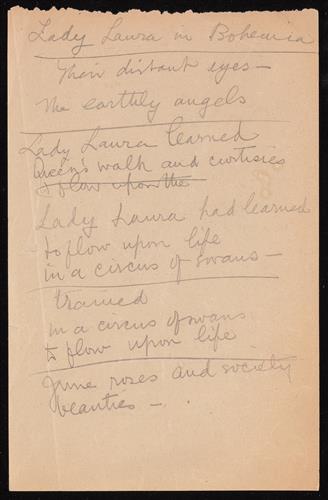 Lady Laura in Bohemia
Their distant eyes —
The earthly angels
Lady Laura learned
Queen's walk and curtisies
to flow upon the
Lady Laura had learned
to flow upon life
in a circus of swans —
trained
in a circus of swans
to flow upon life
June roses and society
beauties — .